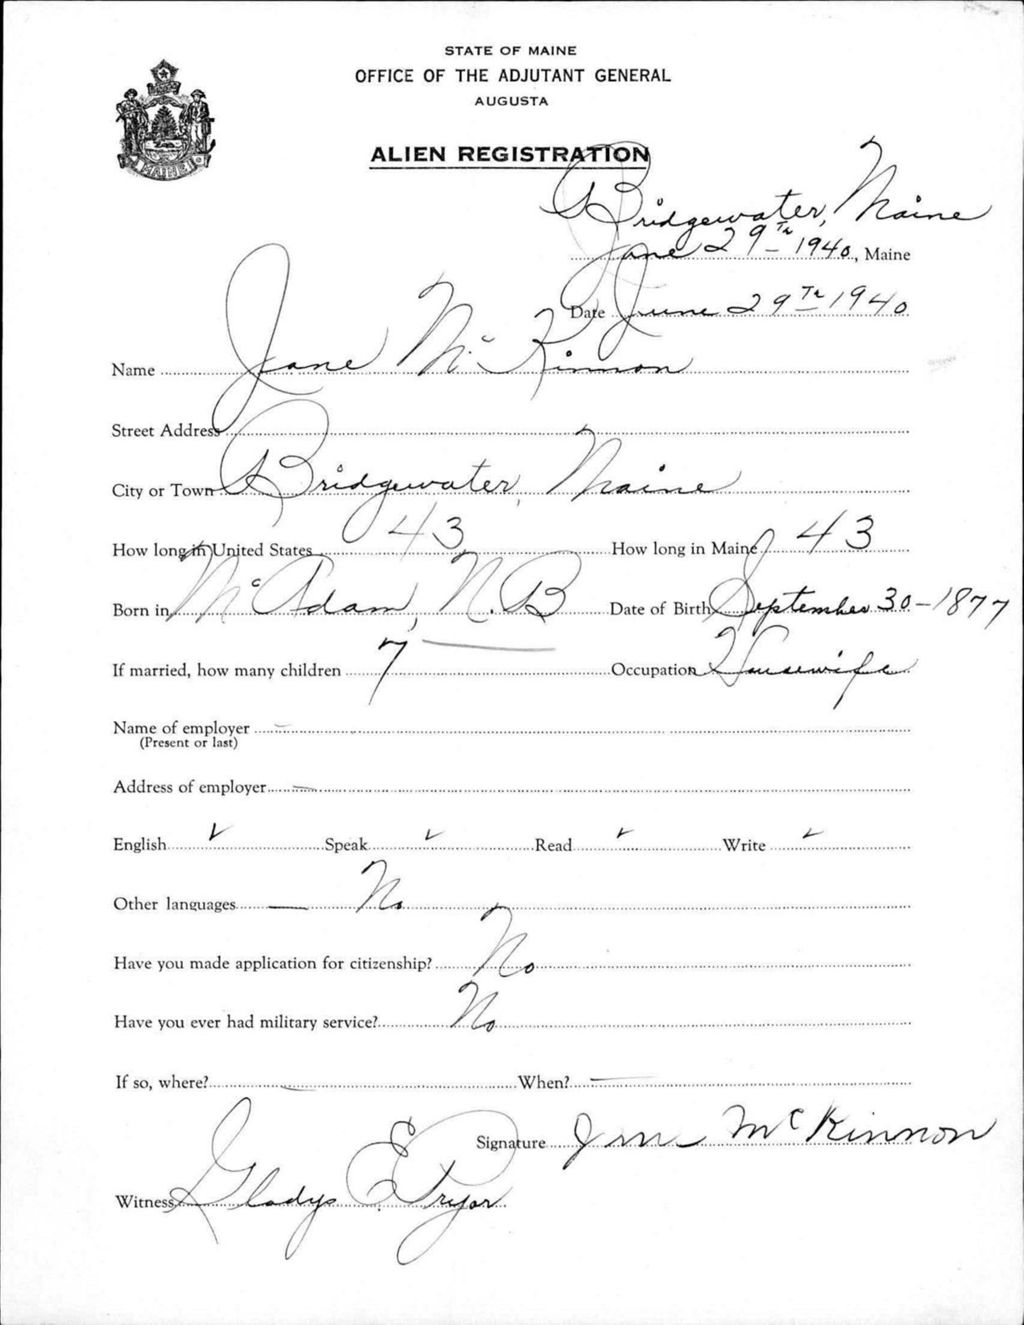 STATE OF MAINE
OFFICE OF THE ADJUTANT GENERAL
AUGUSTA
ALIEN REGISTRATION
MAINE
Bridgewater, Maine
June 29th 1940, Maine
Date June 29th 1940
Name Jane McKinnon
Street Address
City or Town Bridgewater, Maine
How long in United States 43 How long in Maine 43
Born in McAdam, N.B Date of Birth September 30-1877
If married, how many children 7 Occupation Housewife
Name of employer –
(Present or last)
Address of employer –
English ✓ Speak ✓ Read ✓ Write ✓
Other languages — No
Have you made application for citizenship? No
Have you ever had military service? No
If so, where? — When? —
Signature McKinnon
Witness Gladys E. Pryor